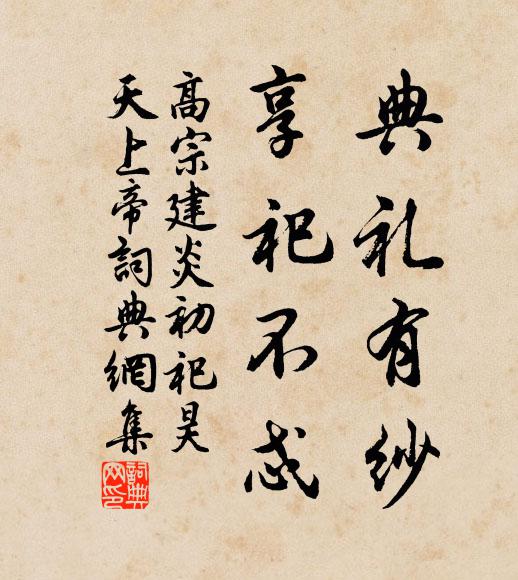 典礼有紗
享祀不忒
高宗建炎初祀昊
天上帝詞典網集
詞典网印